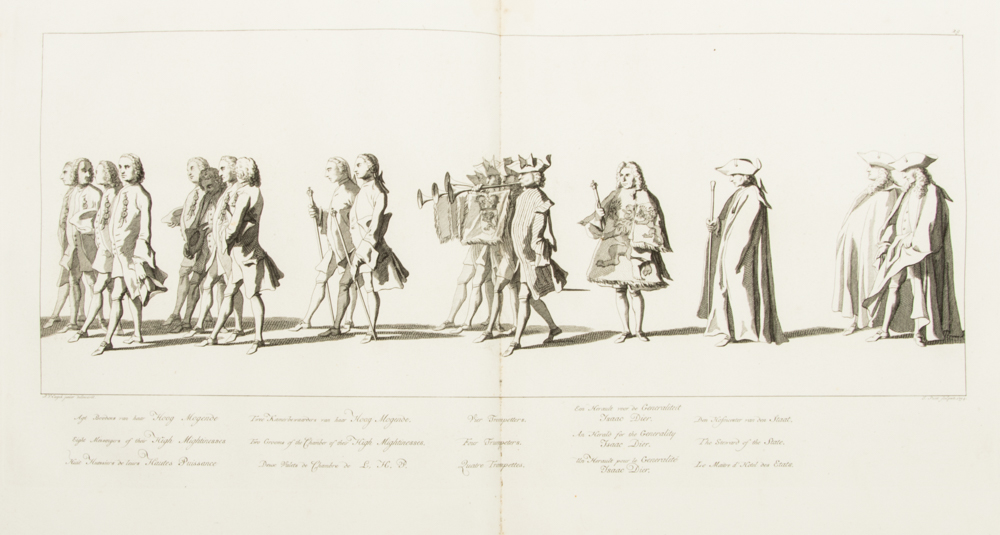 Agt Booden van haar Hoog Mogende
Eight Messengers of their High Mightinesses
Huit Huissiers de leurs Hautes Puissances
Twee Kamerbewaarders van haar Hoog Mogende.
Two Grooms of the Chamber of their High Mightinesses.
Deux Valets de Chambre de L. H. P.
Vier Trompetters.
Four Trompeters.
Quatre Trompettes.
Een Heraudt voor de Generaliteit
Isaac Dier.
An Herald for the Generality
Isaac Dier.
Un Heraudt pour la Generalité
Isaac Dier.
Den Hofmeester van den Staat.
The Steward of the State.
Le Maitre d'Hôtel des Etats.